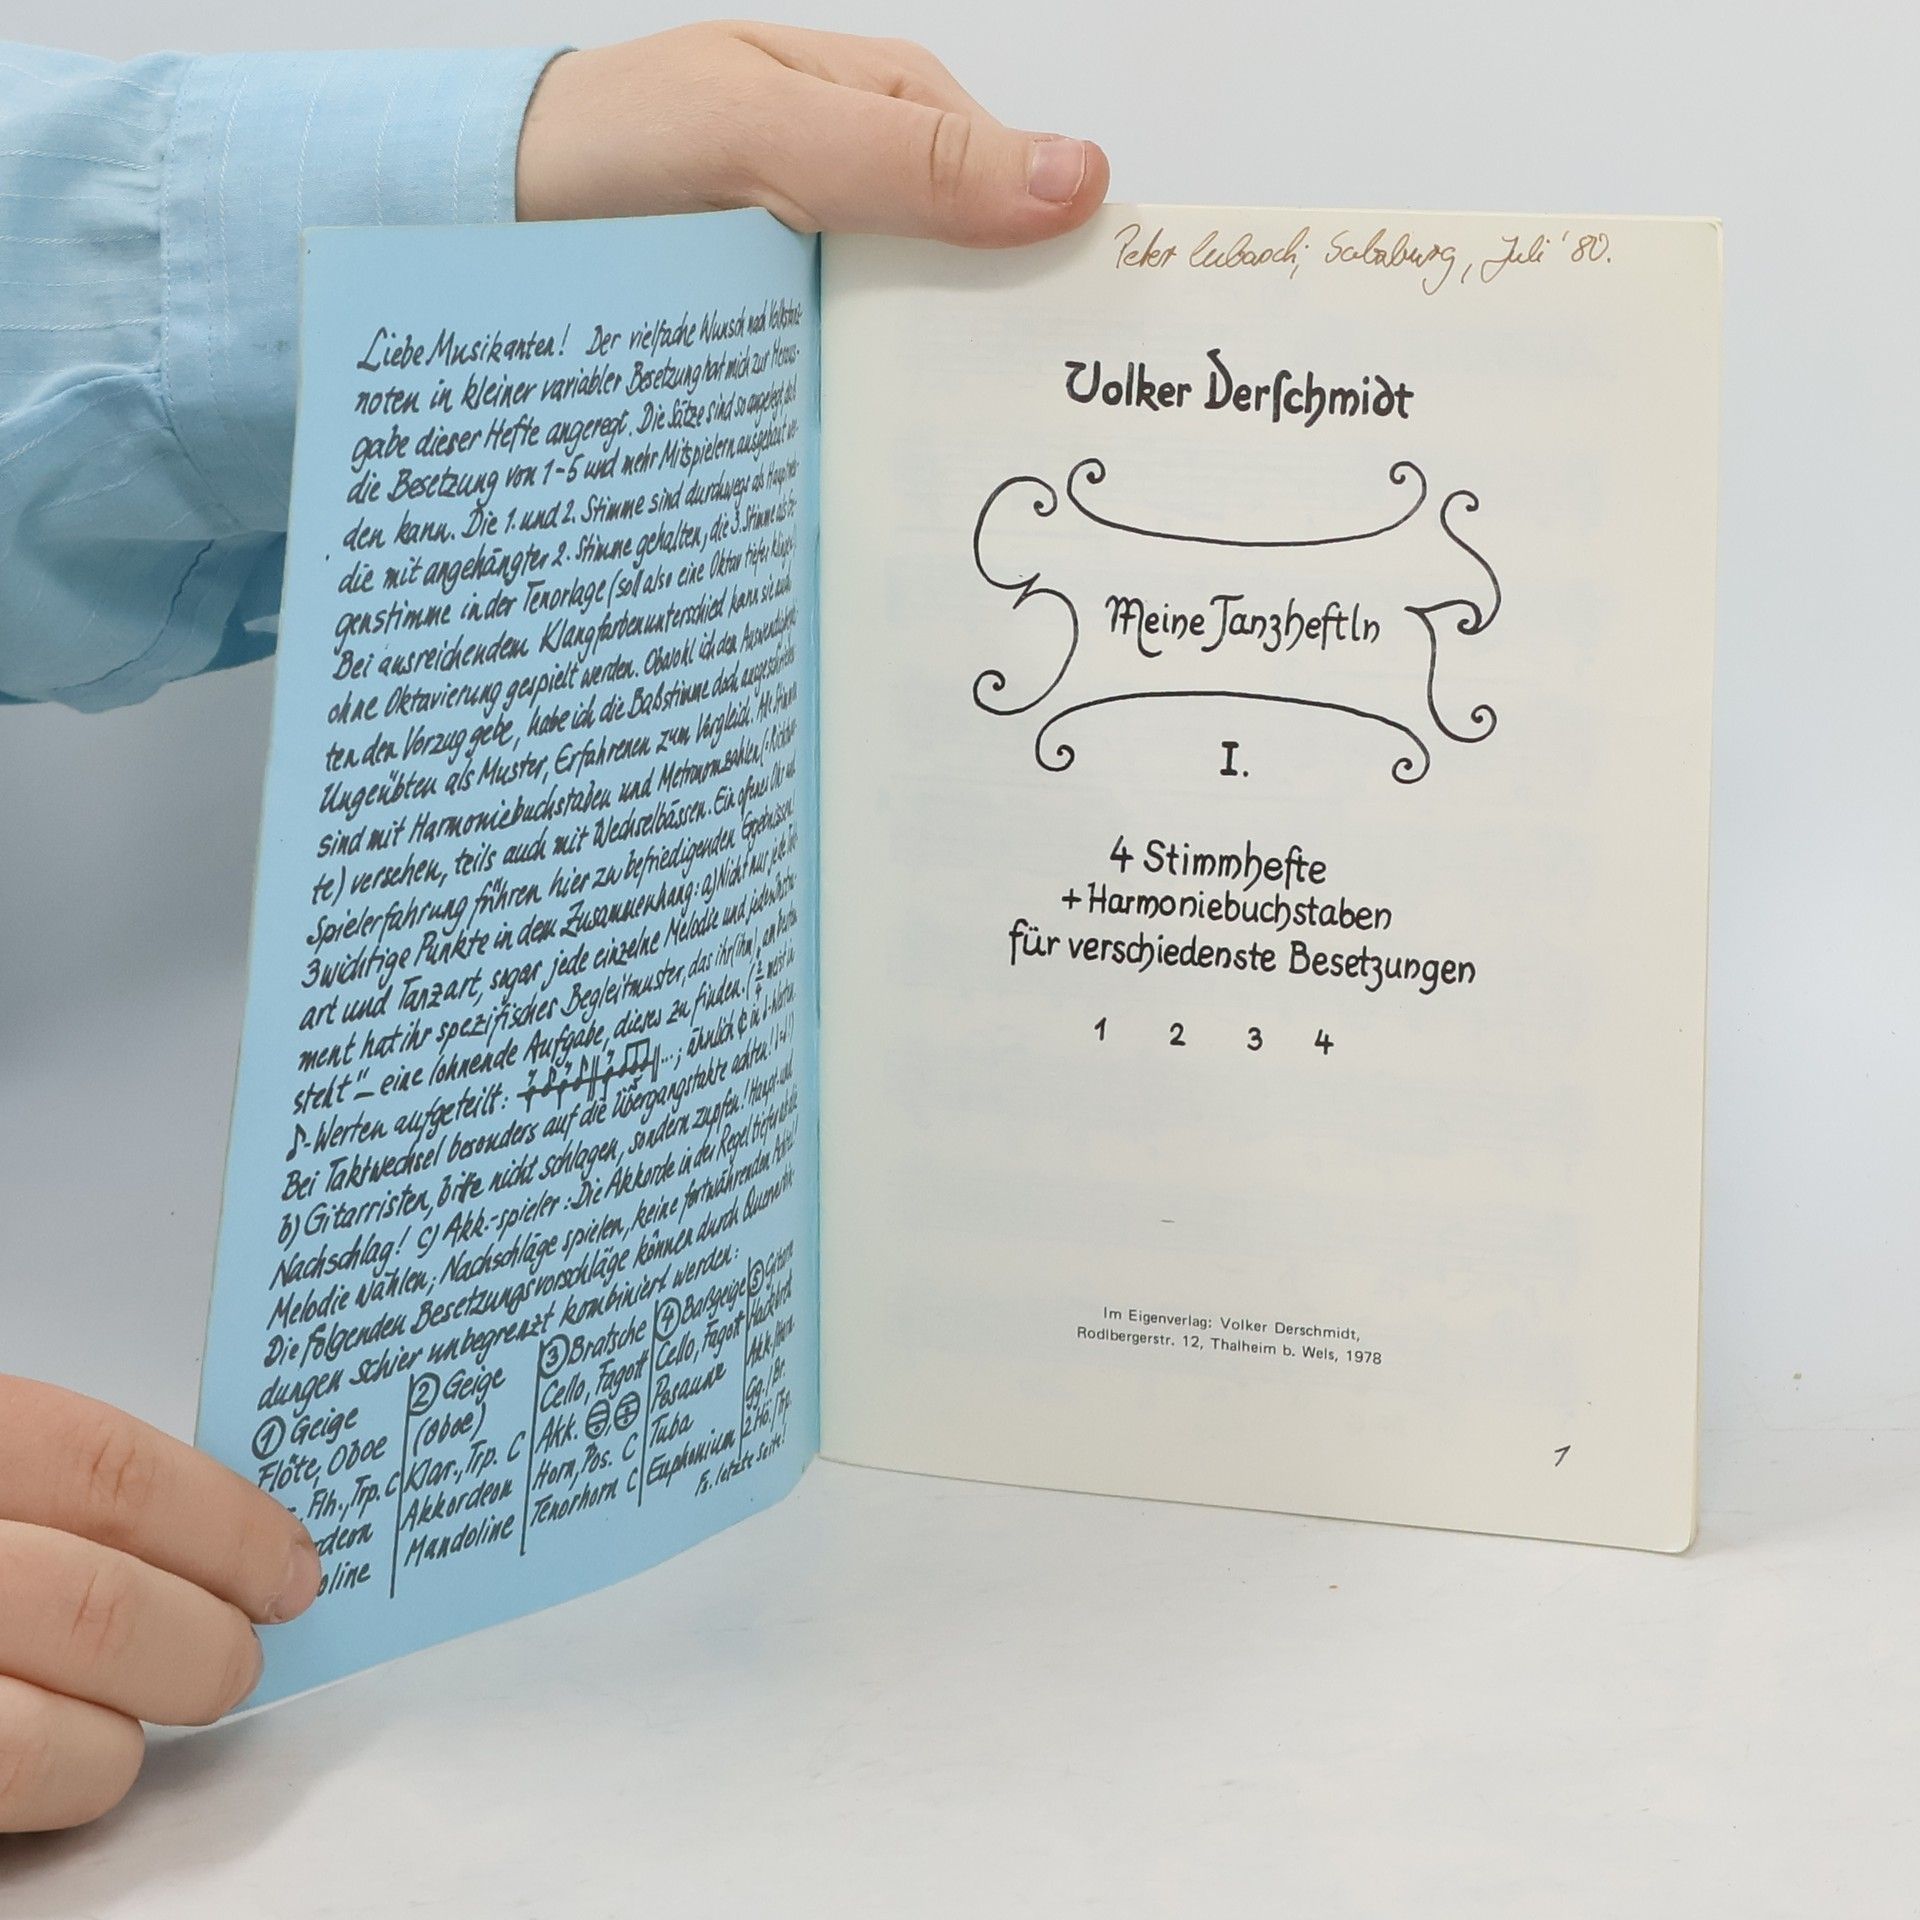 Liebe Musikanten! Der vielfache Wunsch nach Volkstanz-
noten in kleiner variabler Besetzung hat mich zur Heraus-
gabe dieser Hefte angeregt. Die Sätze sind so angelegt, daß
die Besetzung von 1-5 und mehr Mitspielern ausgebaut wer-
den kann. Die 1. und 2. Stimme sind durchwegs als Hauptmelo-
die mit angehängter 2. Stimme gehalten, die 3. Stimme als Ge-
genstimme in der Tenorlage (soll also eine Oktav tiefer klingen).
Bei ausreichendem Klangfarbenunterschied kann sie auch
ohne Oktavierung gespielt werden. Obwohl ich den
ten den Vorzug gebe, habe ich die Baßstimme doch ausgeschrieben,
Ungeübten als Muster, Erfahrenen zum Vergleich. Alle Stimmen
sind mit Harmoniebuchstaben und Metronomzahlen (=Richtwer-
te) versehen, teils auch mit Wechselbässen. Ein offenes Ohr und
Spielerfahrung führen hier zu befriedigenden Ergebnissen!
3 wichtige Punkte in dem Zusammenhang: a) Nicht nur jede Takt-
art und Tanzart, sogar jede einzelne Melodie und jedes Instru-
ment hat ihr spezifisches Begleitmuster, das ihr (ihm) „am besten
steht" – eine lohnende Aufgabe, dieses zu finden. (2/4 meist in
♪-Werten aufgeteilt: ...; ähnlich ¢ in ♩-Werten.
Bei Taktwechsel besonders auf die Übergangstakte achten! (♩=♩!)
b) Gitarristen, bitte nicht schlagen, sondern zupfen! Haupt- und
Nachschlag! c) Akk.-spieler: Die Akkorde in der Regel tiefer als die
Melodie wählen; Nachschläge spielen, keine fortwährenden Achtel!
Die folgenden Besetzungsvorschläge können durch Querverbin-
dungen schier unbegrenzt kombiniert werden:
① Geige
Flöte, Oboe
Flh., Trp. C
rdeon
oline
② Geige
(Oboe)
Klar., Trp. C
Akkordeon
Mandoline
③ Bratsche
Cello, Fagott
Akk.
Horn, Pos. C
Tenorhorn C
④ Baßgeige
Cello, Fagott
Posaune
Tuba
Euphonium
⑤ Gitarre
Hackbrett
Akk./Harm.
Gg./Br.
2. Hö./Trp.
Fs. letzte Seite!
Peter Salzburg, Juli '80.
Volker Derschmidt
Meine Tanzheftln
I.
4 Stimmhefte
+Harmoniebuchstaben
für verschiedenste Besetzungen
1 2 3 4
Im Eigenverlag: Volker Derschmidt,
Rodlbergerstr. 12, Thalheim b. Wels, 1978
1